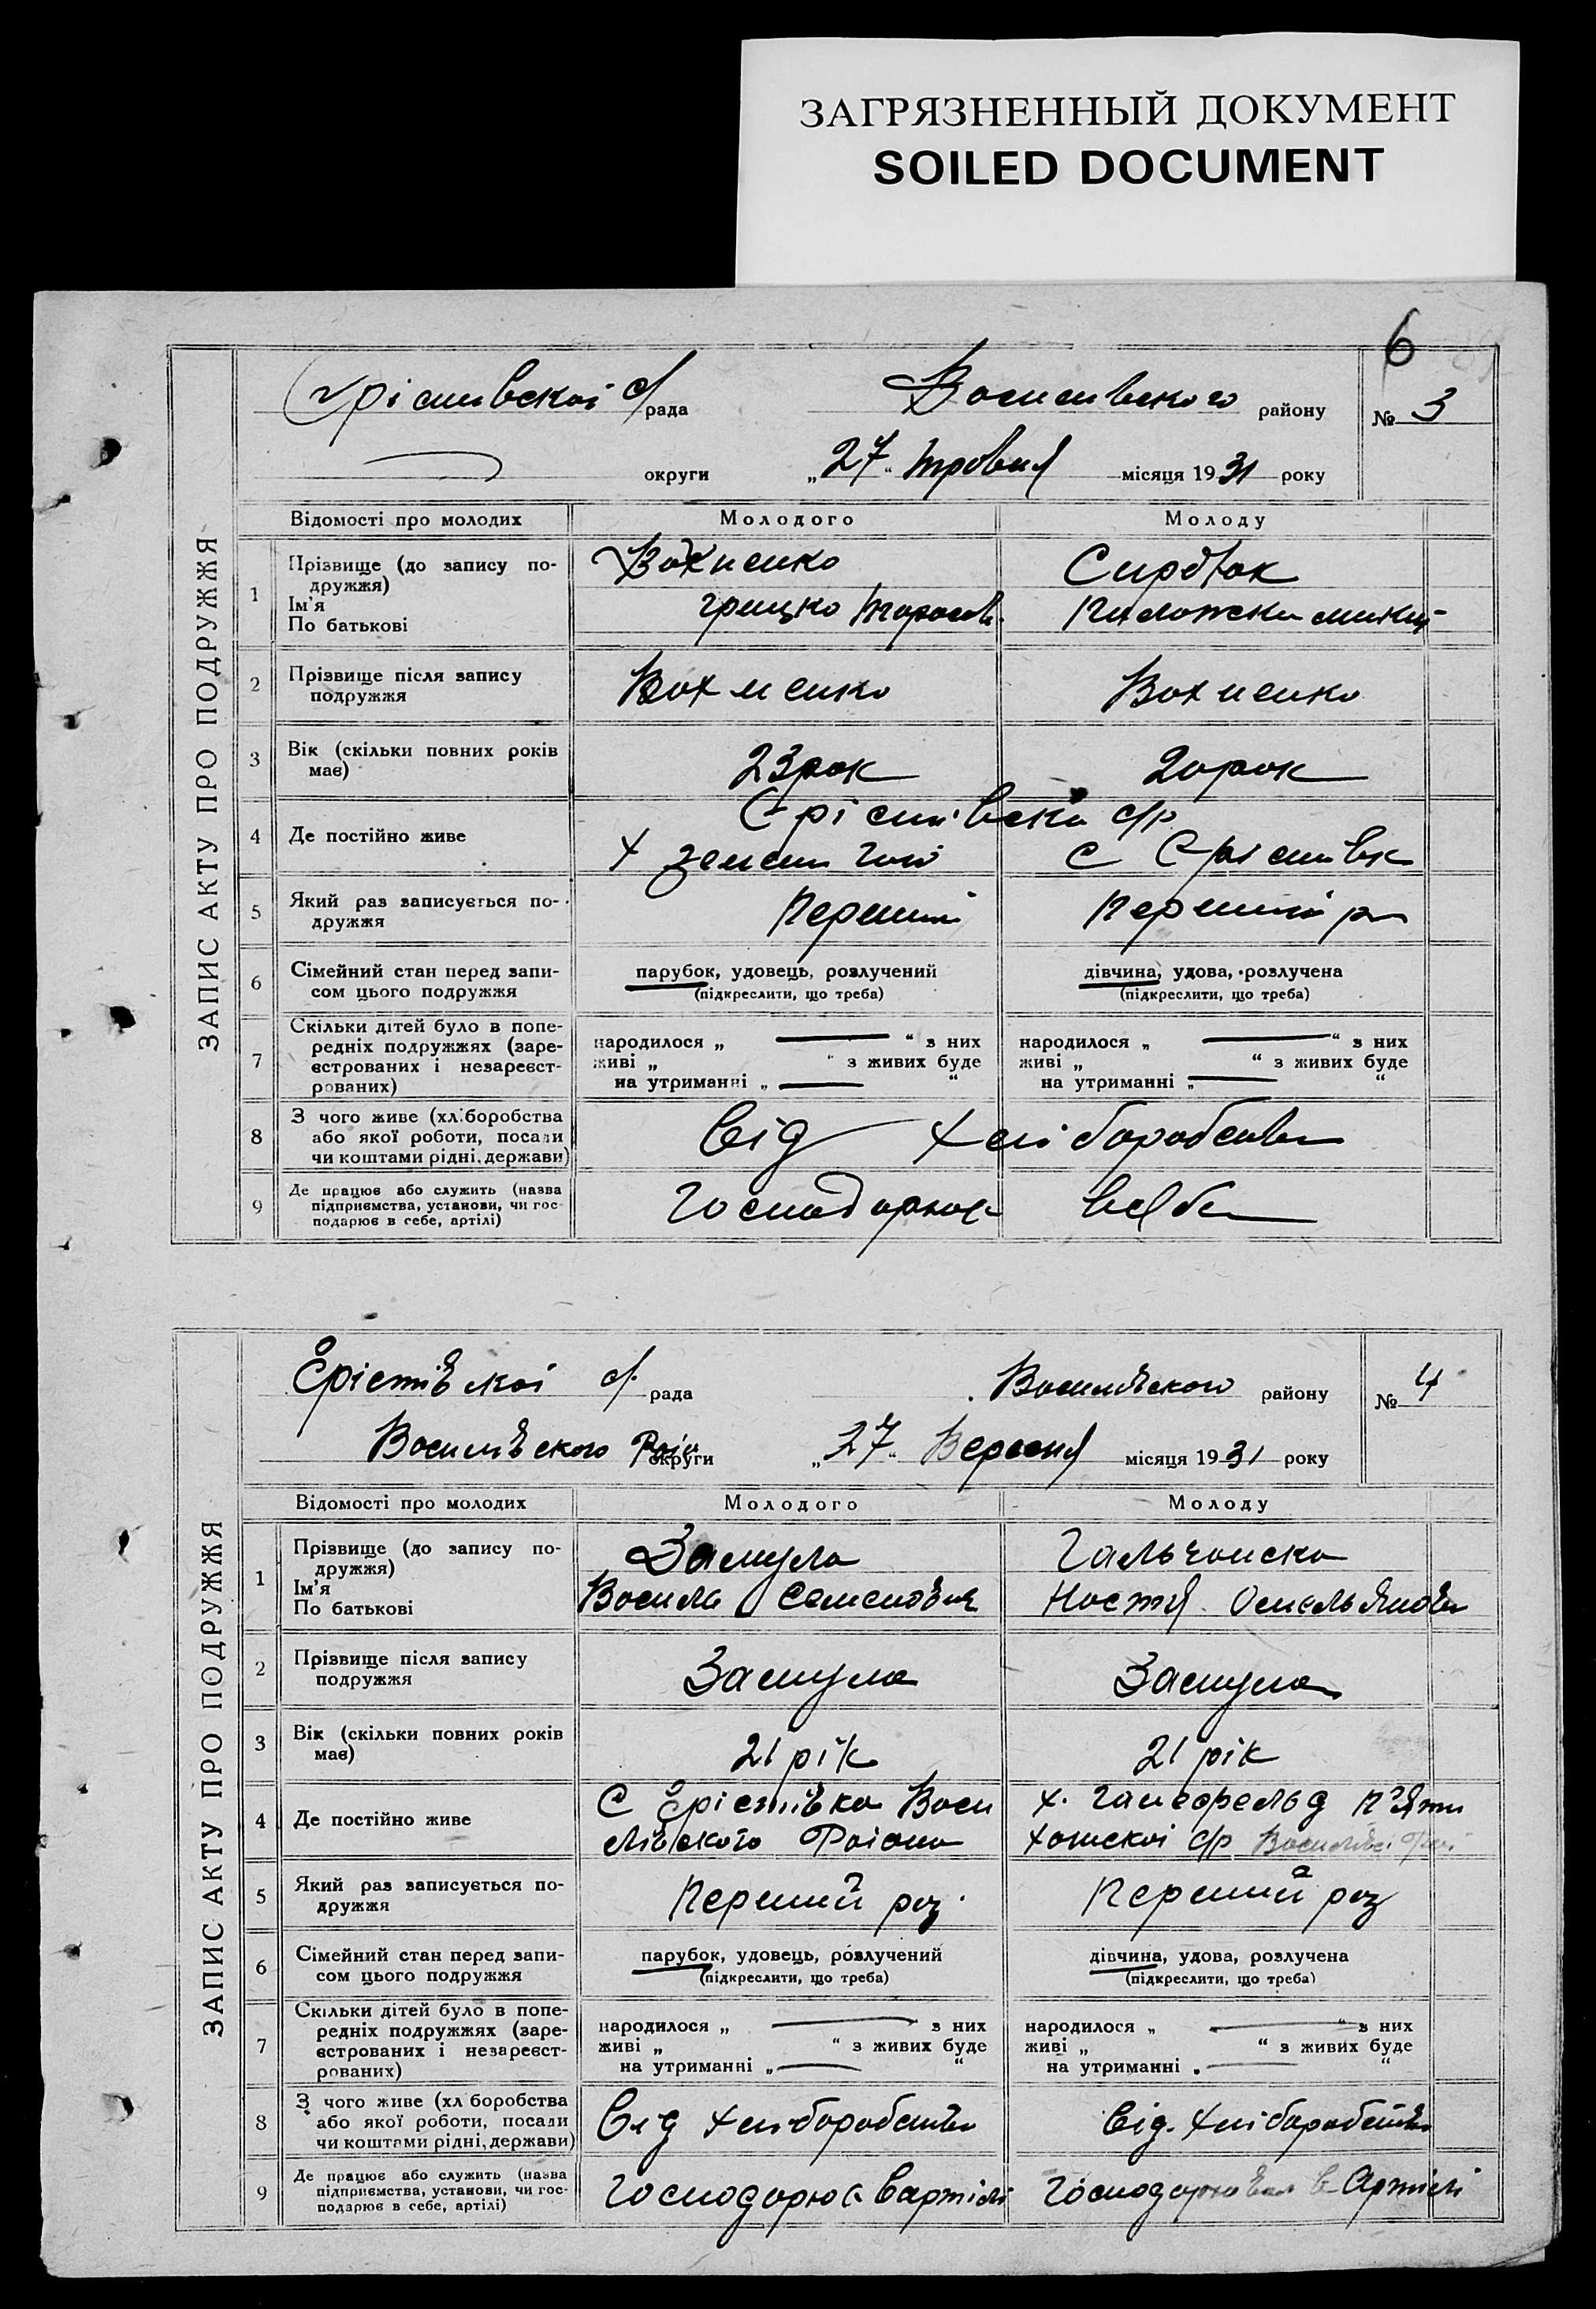 ЗАГРЯЗНЕННЫЙ ДОКУМЕНТ
SOILED DOCUMENT
6
ЗАПИС АКТУ ПРО ПОДРУЖЖЯ
с/рада району № 3
округи „27“ місяця 1931 року
Відомості про молодих Молодого Молоду
1 Прізвище (до запису подружжя)
Ім'я
По батькові
Грицко
2 Прізвище після запису
подружжя
Вохменко Вохменко
3 Вік (скільки повних років
має)
23 рок 20 рок
4 Де постійно живе
с/р
х с
5 Який раз записується по-
дружжя
Перший Перший
6 Сімейний стан перед запи-
сом цього подружжя
парубок, удовець, розлучений дівчина, удова, розлучена
(підкреслити, що треба) (підкреслити, що треба)
7 Скільки дітей було в попе-
редніх подружжях (заре-
єстрованих і незареєст-
рованих)
народилося „ “ з них народилося „ “ з них
живі „ “ з живих буде живі „ “ з живих буде
на утриманні „ “ на утриманні „ “
8 З чого живе (хліборобства
або якої роботи, посади
чи коштами рідні, держави)
від хліборобства
9 Де працює або служить (назва
підприємства, установи, чи гос-
подарює в себе, артілі)
Господарює
ЗАПИС АКТУ ПРО ПОДРУЖЖЯ
Єрістівскої с/. рада Василівского району № 4
Василівского округи „27“ Вересня місяця 1931 року
Відомості про молодих Молодого Молоду
1 Прізвище (до запису по-
дружжя)
Ім'я
По батькові
Замула
Настя
2 Прізвище після запису
подружжя
Замула Замула
3 Вік (скільки повних років
має)
21 рік 21 рік
4 Де постійно живе
С Єрістівка Васи х.
лівского с/р
5 Який раз записується по-
дружжя
Перший раз Перший раз
6 Сімейний стан перед запи-
сом цього подружжя
парубок, удовець, розлучений дівчина, удова, розлучена
(підкреслити, що треба) (підкреслити, що треба)
7 Скільки дітей було в попе-
редніх подружжях (заре-
єстрованих і незареєст-
рованих)
народилося „ “ з них народилося „ “ з них
живі „ “ з живих буде живі „ “ з живих буде
на утриманні „ “ на утриманні „ “
8 З чого живе (хліборобства
або якої роботи, посади
чи коштами рідні, держави)
Від хліборобства від. хліборобства
9 Де працює або служить (назва
підприємства, установи, чи гос-
подарює в себе, артілі)
Господарює в артілі в Артілі